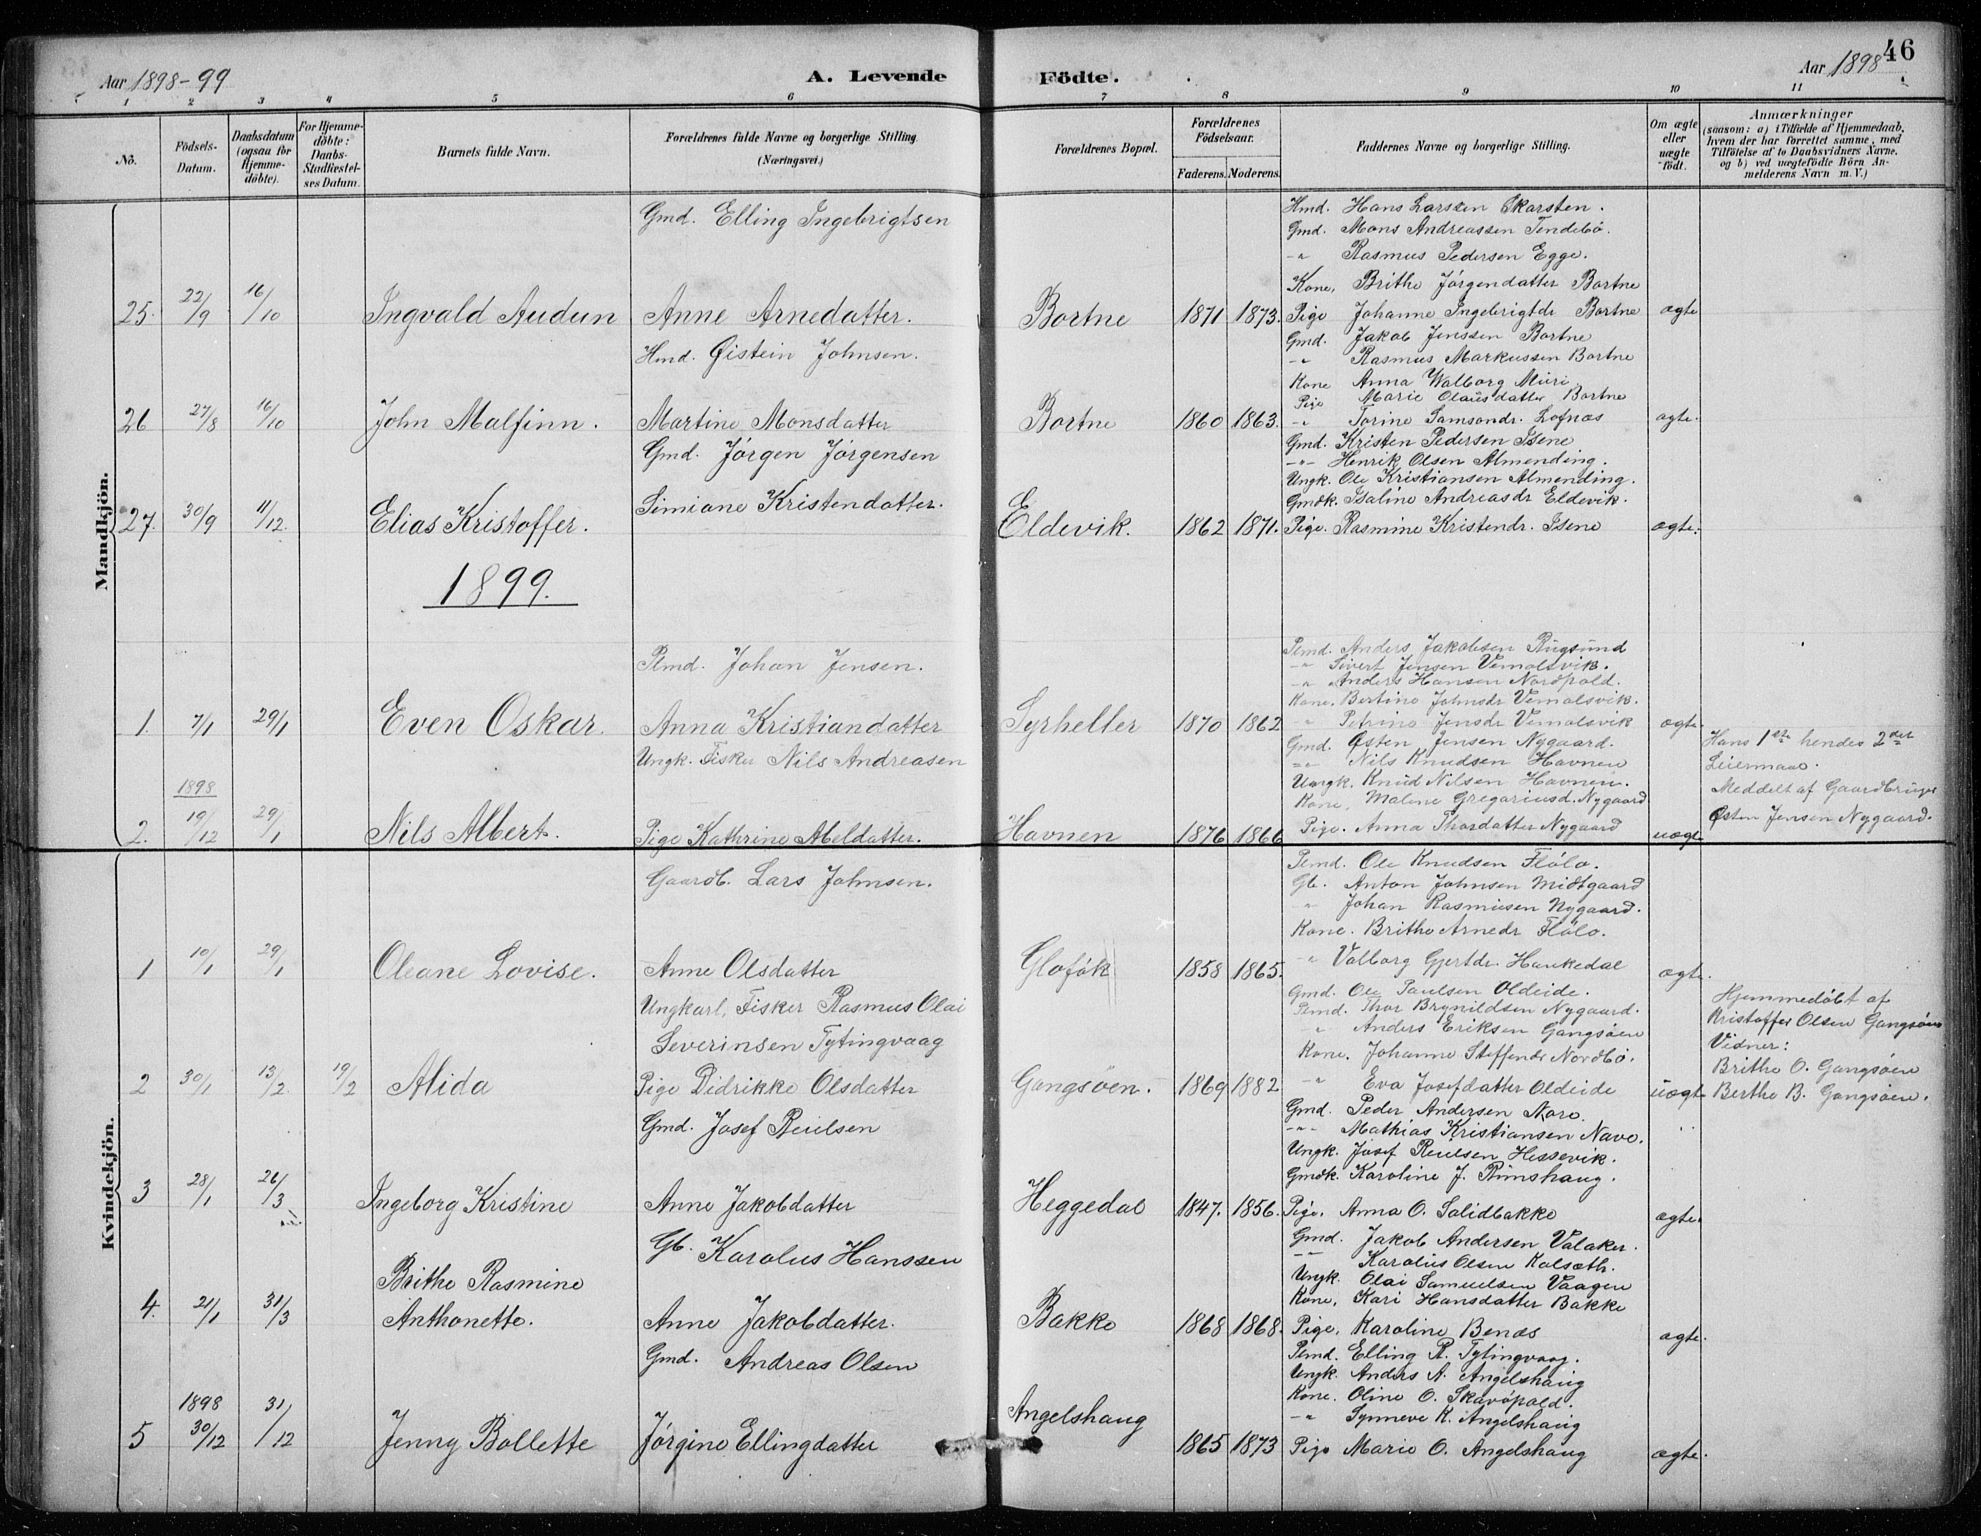 Aar 1898-99
A. Levende
Födte.
Aar 1898
46
1 2 3 4 5 6 7 8 9 10 11
No.
Födsels-
Datum.
Daabsdatum
(ogsaa for
Hjemme-
döbte).
For Hjemme-
döbte:
Daabs-
Stadfæstel-
ses Datum.
Barnets fulde Navn.
Forældrenes fulde Navne og borgerlige Stilling.
(Næringsvei.)
Forældrenes Bopæl.
Forældrenes
Födselsaar.
Faderens. Moderens.
Faddernes Navne og borgerlige Stilling.
Om ægte
eller
uægte
födt.
Anmærkninger
(saasom: a) i Tilfælde af Hjemmedaab,
hvem der har forrettet samme, med
Tilföielse af to Daabsvidners Navne,
og b) ved uægtefödte Börn An-
melderens Navn m. V.)
Mandkjön.
Gmd. Elling Ingebrigtsen
25. 22/9 16/10 Ingvald Audun Anne Arnedatter. Bortne 1871 1873. ægte
Hmd. Hans Larssen Skarsten.
Gmd. Mons Andreassen Tendebö.
-"- Rasmus Pedersen Egge.
Kone, Brithe Jörgendatter Bortne
Pige Johanne Ingebrigtdr Bortne
Hmd. Øistein Johnsen.
26 27/8 16/10 John Malfinn. Martine Monsdatter Bortne 1860 1863. ægte.
Gmd. Jakob Jenssen Bortne
-"- Rasmus Markussen Bortne
Kone Anna Walborg Muri
Pige Marie Olausdatter Bortne
-"- Torine Samsondr. Lofnæs
Gmd. Jörgen Jörgensen
27. 30/9 11/12. Elias Kristoffer. Simiane Kristendatter. Eldevik. 1862 1871. ægte.
Gmd. Kristen Pedersen Isene
-"- Henrik Olsen Almending.
Ungk. Ole Kristiansen Almending.
Gmdk. Isaline Andreasdr Eldevik.
Pige. Rasmine Kristendr. Isene
1899.
Plmd. Johan Jensen.
1. 7/1 29/1 Even Oskar. Anna Kristiandatter Syrheller 1870 1862 ægte.
Plmd. Anders Jakobsen Rugsund
-"- Sivert Jensen Vemolsvik.
-"- Anders Hansen Nordpold.
Kone, Bertine Johnsdr Vemolsvik.
-"- Petrine Jensdr Vemolsvik
Ungk. Fisker Nils Andreasen
1898
2. 19/12 29/1 Nils Albert. Pige Kathrine Abeldatter. Havnen 1876 1866 uægte
Gmd. Østen Jensen Nygaard.
-"- Nils Knudsen Havnen
Ungk. Knud Nilsen Havnen.
Kone, Malene Gregariusd. Nygaard
Pige. Anna Thordatter Nygaard
Hans 1ste hendes 2det
Leiermaal.
Meddelt af Gaardbruger
Østen Jensen Nygaard.
Kvindekjön.
Gaardb. Lars Johnsen.
1 10/1 29/1 Oleane Lovise. Anne Olsdatter Glofök 1858 1865. ægte.
Plmd. Ole Knudsen Flölo.
Gb. Anton Johnsen Midtgaard
" Johan Rasmussen Nygaard.
Kone. Brithe Arnedr Flölo.
" Valborg Gjertdr. Haukedal
Ungkarl, Fisker Rasmus Olai
Severinsen Tytingvaag
2 30/1 13/2. 19/2 Alida Pige Didrikke Olsdatter Gangsöen. 1869 1882 uægte
Gmd. Ole Paulsen Oldeide.
Plmd. Thor Brynildsen Nygaard.
" Anders Eriksen Gangsöen
Kone. Johanne Steffensdr Nordbö.
-"- Eva Josefdatter Oldeide
Hjemmedöbt af
Kristoffer Olsen Gangsöen
Vidner:
Brithe O. Gangsöen
Berthe B. Gangsöen.
Gmd. Josef Reulsen
3 28/1 26/3 Ingeborg Kristine Anne Jakobdatter Heggedal 1847. 1856. ægte.
Gmd. Peder Andersen Nore.
-"- Mathias Kristiansen Nave.
Ungk. Josef Reulsen Hessevik.
Gmdk. Karoline J. Rimshaug.
Pige. Anna O. Solidbakke
Gb. Karolus Hanssen
Brithe Rasmine
4. 21/1 31/3 Anthonette. Anne Jakobdatter. Bakke 1868 1868. ægte.
Gmd. Jakob Andersen Valaker.
-"- Karolus Olsen Kolsæth.
Ungk. Olai Samuelsen Vaagen
Kone, Kari Hansdatter Bakke
Pige, Karoline Benæs
Gmd. Andreas Olsen
1898
5 30/12 31/12 Jenny Bollette Jörgine Ellingdatter Angelshaug 1865 1873 ægte.
Plmd. Elling R. Tytingvaag.
Ungk. Anders A. Angelshaug
Kone. Oline O. Skavöpold.
-"- Synneve K. Angelshaug
Pige Marie O. Angelshaug